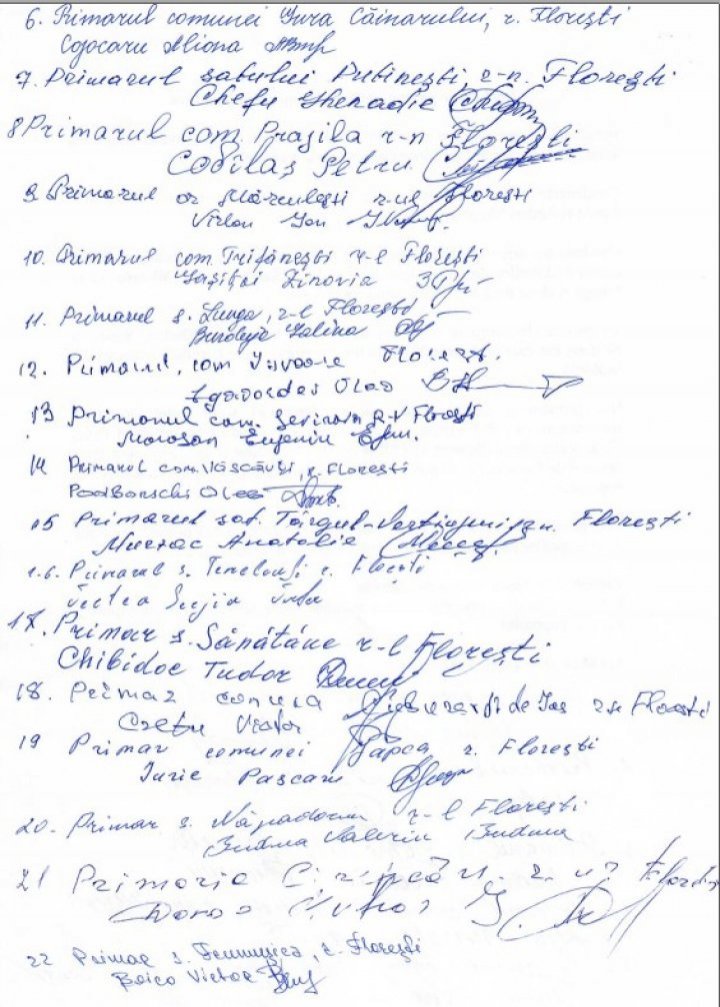 6. Primarul comunei Gura Căinarului, r. Florești
Cojocaru Aliona
7. Primarul satului Putinești, r-n. Florești
Chefu Ghenadie
8 Primarul com. Prajila r-n Florești
Codilaș Petru
9. Primarul or Mărculești r-ul Florești
Ion
10. Primarul com. Trifănești r-l Florești
Zinovia
11. Primarul s. Lunga, r-l Florești
Galina
12. Primarul, com Izvoare Floreșt.
Oleg
13 Primarul com. r-l Florești
Moroșan Eugeniu
14 Primarul com. Văscăuți, r. Florești
Podborschi Oleg
15 Primarul sat. Târgul-Vertiujeni r-n. Florești
Murzac Anatolie
16. Primarul s. r. Florești
17. Primar s. Sănătăuc r-l Florești
Chibidoc Tudor
18. Primar comuna de Jos r-n Florești
Crețu Victor
19 Primar comunei Țâpca, r. Florești
Iurie Pascaru
20. Primar s. Năpadova r-l Florești
Valeriu
21 Primaria
22 Primar s. , r. Florești
Boico Victor